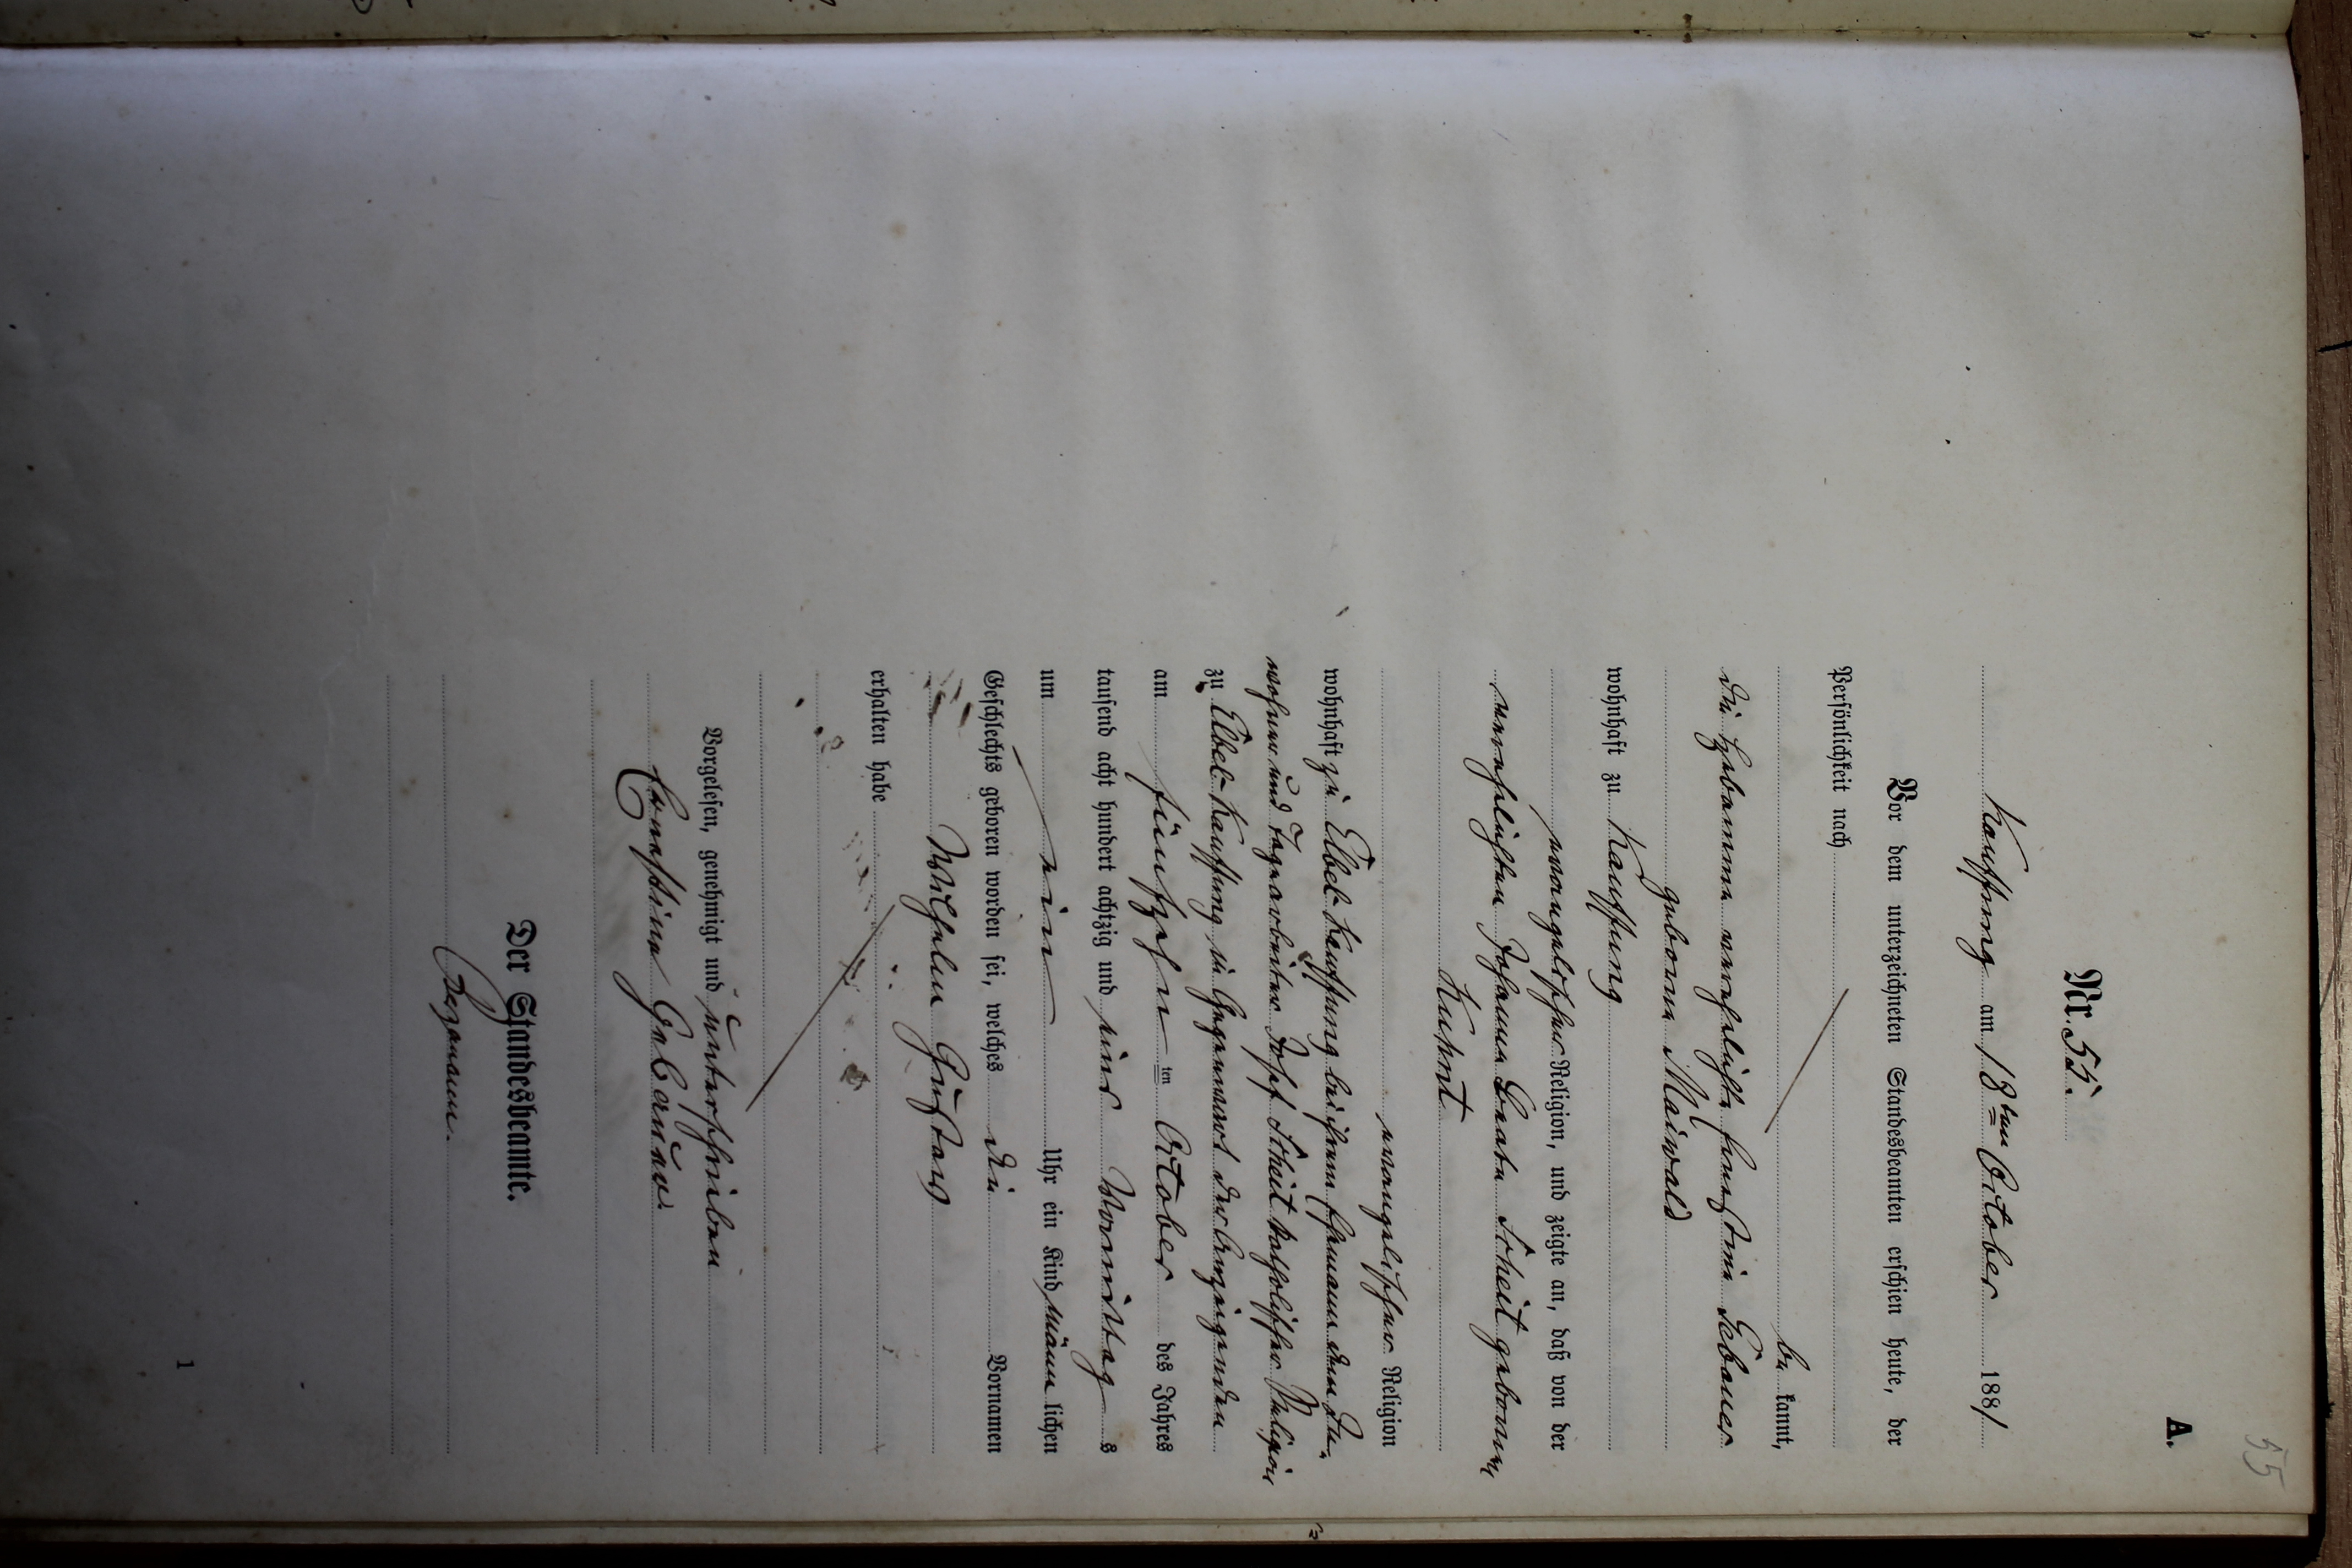 55
A.
Nr. 55.
Kauffung am 18ten October 1881
Vor dem unterzeichneten Standesbeamten erschien heute, der
Persönlichkeit nach
be kannt,
die Hebamme verehelichte Ernestine Gebauer
geborene Maiwald
wohnhaft zu Kauffung
evangelischer Religion, und zeigte an, daß von der
verehelichten Johanna Beate Scheit geborene
Kuhnt
evangelischer Religion
wohnhaft zu Elbel-Kauffung bei ihrem Ehemann dem In-
wohner und Tagearbeiter Josef Scheit katholischer Religion
zu Elbel-Kauffung in Gegenwart der Anzeigenden
am fünfzehn ten October des Jahres
tausend acht hundert achtzig und eins Vormittag s
um ein Uhr ein Kind männ lichen
Geschlechts geboren worden sei, welches die Vornamen
Wilhelm Gustav
erhalten habe
Vorgelesen, genehmigt und unterschrieben
Ernestine Gebauer
Der Standesbeamte.
1